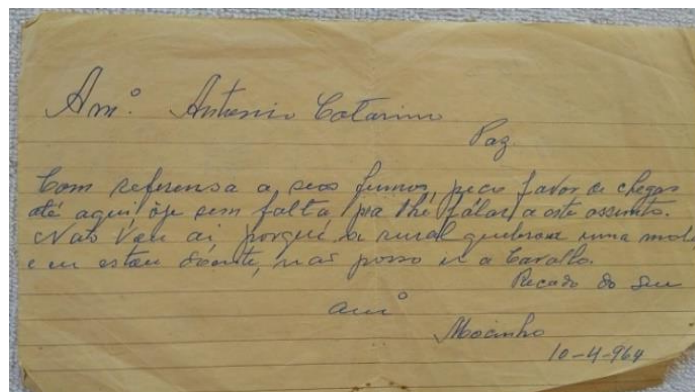 Amº. Antonio Catarino
Paz.
Com referensa a seos fumos, peço favor de chegar
até aqui ôje sem falta pra lhe fálar a este assunto.
Não Vou ai porquê a rural quebrou uma mola
e eu estou doente, não posso ir a Cavallo.
Recado do seu
amº
Mocinho
10-4-964